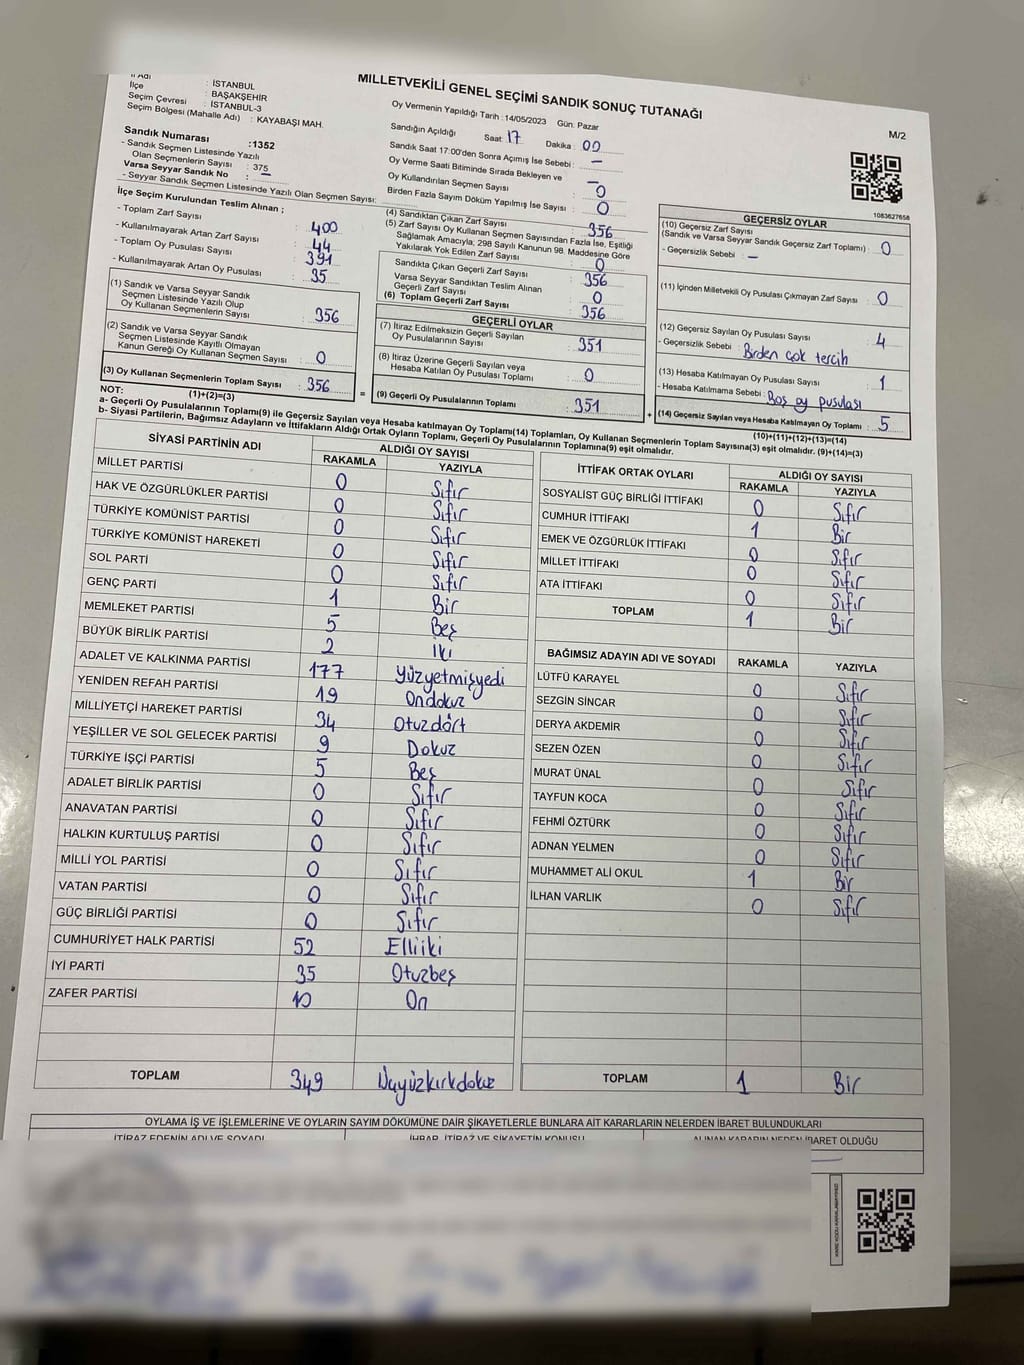 MİLLETVEKİLİ GENEL SEÇİMİ SANDIK SONUÇ TUTANAĞI
M/2
İl Adı : İSTANBUL
İlçe : BAŞAKŞEHİR
Seçim Çevresi : İSTANBUL-3
Seçim Bölgesi (Mahalle Adı) : KAYABAŞI MAH.
Sandık Numarası :1352
- Sandık Seçmen Listesinde Yazılı
Olan Seçmenlerin Sayısı : 375
Varsa Seyyar Sandık No : –
- Seyyar Sandık Seçmen Listesinde Yazılı Olan Seçmen Sayısı:
Oy Vermenin Yapıldığı Tarih : 14/05/2023 Gün: Pazar
Sandığın Açıldığı Saat: 17 Dakika : 00
Sandık Saat 17:00'den Sonra Açımış İse Sebebi : –
Oy Verme Saati Bitiminde Sırada Bekleyen ve
Oy Kullandırılan Seçmen Sayısı : –
Birden Fazla Sayım Döküm Yapılmış İse Sayısı : 0
0
1083627658
İlçe Seçim Kurulundan Teslim Alınan ;
- Toplam Zarf Sayısı : 400
- Kullanılmayarak Artan Zarf Sayısı : 44
- Toplam Oy Pusulası Sayısı : 391
- Kullanılmayarak Artan Oy Pusulası : 35
(1) Sandık ve Varsa Seyyar Sandık
Seçmen Listesinde Yazılı Olup
Oy Kullanan Seçmenlerin Sayısı : 356
(2) Sandık ve Varsa Seyyar Sandık
Seçmen Listesinde Kayıtlı Olmayan
Kanun Gereği Oy Kullanan Seçmen Sayısı : 0
(3) Oy Kullanan Seçmenlerin Toplam Sayısı : 356
(1)+(2)=(3)
(4) Sandıktan Çıkan Zarf Sayısı : 356
(5) Zarf Sayısı Oy Kullanan Seçmen Sayısından Fazla İse, Eşitliği
Sağlamak Amacıyla, 298 Sayılı Kanunun 98. Maddesine Göre
Yakılarak Yok Edilen Zarf Sayısı : 0
Sandıkta Çıkan Geçerli Zarf Sayısı : 356
Varsa Seyyar Sandıktan Teslim Alınan
Geçerli Zarf Sayısı : 0
(6) Toplam Geçerli Zarf Sayısı : 356
GEÇERLİ OYLAR
(7) İtiraz Edilmeksizin Geçerli Sayılan
Oy Pusulalarının Sayısı : 351
(8) İtiraz Üzerine Geçerli Sayılan veya
Hesaba Katılan Oy Pusulası Toplamı : 0
= (9) Geçerli Oy Pusulalarının Toplamı : 351
GEÇERSİZ OYLAR
(10) Geçersiz Zarf Sayısı
(Sandık ve Varsa Seyyar Sandık Geçersiz Zarf Toplamı) : 0
- Geçersizlik Sebebi : –
(11) İçinden Milletvekili Oy Pusulası Çıkmayan Zarf Sayısı : 0
(12) Geçersiz Sayılan Oy Pusulası Sayısı : 4
- Geçersizlik Sebebi : Birden çok tercih
(13) Hesaba Katılmayan Oy Pusulası Sayısı : 1
- Hesaba Katılmama Sebebi : Boş oy pusulası
+ (14) Geçersiz Sayılan veya Hesaba Katılmayan Oy Toplamı : 5
(10)+(11)+(12)+(13)=(14)
NOT:
a- Geçerli Oy Pusulalarının Toplamı(9) ile Geçersiz Sayılan veya Hesaba katılmayan Oy Toplamı(14) Toplamları, Oy Kullanan Seçmenlerin Toplam Sayısına(3) eşit olmalıdır. (9)+(14)=(3)
b- Siyasi Partilerin, Bağımsız Adayların ve İttifakların Aldığı Ortak Oyların Toplamı, Geçerli Oy Pusulalarının Toplamına(9) eşit olmalıdır.
SİYASİ PARTİNİN ADI ALDIĞI OY SAYISI
RAKAMLA YAZIYLA
MİLLET PARTİSİ 0 Sıfır
HAK VE ÖZGÜRLÜKLER PARTİSİ 0 Sıfır
TÜRKİYE KOMÜNİST PARTİSİ 0 Sıfır
TÜRKİYE KOMÜNİST HAREKETİ 0 Sıfır
SOL PARTİ 0 Sıfır
GENÇ PARTİ 1 Bir
MEMLEKET PARTİSİ 5 Beş
BÜYÜK BİRLİK PARTİSİ 2 İki
ADALET VE KALKINMA PARTİSİ 177 Yüzyetmişyedi
YENİDEN REFAH PARTİSİ 19 Ondokuz
MİLLİYETÇİ HAREKET PARTİSİ 34 Otuzdört
YEŞİLLER VE SOL GELECEK PARTİSİ 9 Dokuz
TÜRKİYE İŞÇİ PARTİSİ 5 Beş
ADALET BİRLİK PARTİSİ 0 Sıfır
ANAVATAN PARTİSİ 0 Sıfır
HALKIN KURTULUŞ PARTİSİ 0 Sıfır
MİLLİ YOL PARTİSİ 0 Sıfır
VATAN PARTİSİ 0 Sıfır
GÜÇ BİRLİĞİ PARTİSİ 0 Sıfır
CUMHURİYET HALK PARTİSİ 52 Elliiki
İYİ PARTİ 35 Otuzbeş
ZAFER PARTİSİ 10 On
TOPLAM 349 Üçyüzkırkdokuz
İTTİFAK ORTAK OYLARI ALDIĞI OY SAYISI
RAKAMLA YAZIYLA
SOSYALİST GÜÇ BİRLİĞİ İTTİFAKI 0 Sıfır
CUMHUR İTTİFAKI 1 Bir
EMEK VE ÖZGÜRLÜK İTTİFAKI 0 Sıfır
MİLLET İTTİFAKI 0 Sıfır
ATA İTTİFAKI 0 Sıfır
TOPLAM 1 Bir
BAĞIMSIZ ADAYIN ADI VE SOYADI RAKAMLA YAZIYLA
LÜTFÜ KARAYEL 0 Sıfır
SEZGİN SİNCAR 0 Sıfır
DERYA AKDEMİR 0 Sıfır
SEZEN ÖZEN 0 Sıfır
MURAT ÜNAL 0 Sıfır
TAYFUN KOCA 0 Sıfır
FEHMİ ÖZTÜRK 0 Sıfır
ADNAN YELMEN 0 Sıfır
MUHAMMET ALİ OKUL 1 Bir
İLHAN VARLIK 0 Sıfır
TOPLAM 1 Bir
OYLAMA İŞ VE İŞLEMLERİNE VE OYLARIN SAYIM DÖKÜMÜNE DAİR ŞİKAYETLERLE BUNLARA AİT KARARLARIN NELERDEN İBARET BULUNDUKLARI
İTİRAZ EDENİN ADI VE SOYADI İHBAR, İTİRAZ VE ŞİKAYETİN KONUSU ALINAN KARARIN NEDEN İBARET OLDUĞU